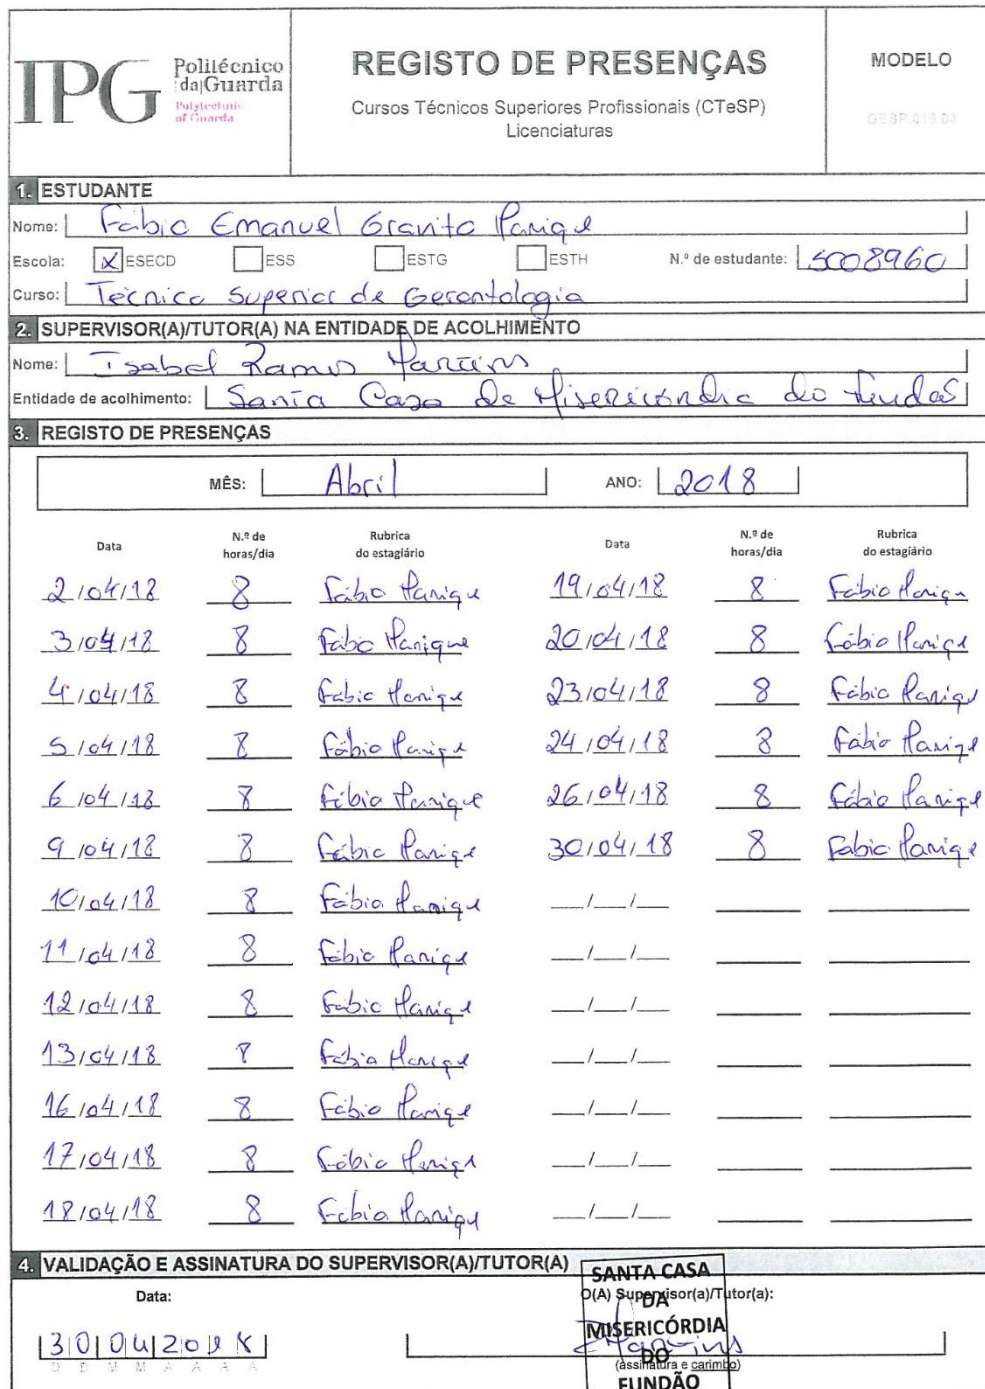 IPG Politécnico da Guarda
Polytechnic of Guarda
REGISTO DE PRESENÇAS
Cursos Técnicos Superiores Profissionais (CTeSP)
Licenciaturas
MODELO
GESP.018.04
1. ESTUDANTE
Nome: Fábio Emanuel Granito Manique
Escola: X ESECD ESS ESTG ESTH N.º de estudante: 5008960
Curso: Técnico Superior de Gerontologia
2. SUPERVISOR(A)/TUTOR(A) NA ENTIDADE DE ACOLHIMENTO
Nome: Isabel Ramos Martins
Entidade de acolhimento: Santa Casa de Misericórdia do Fundão
3. REGISTO DE PRESENÇAS
MÊS: Abril ANO: 2018
Data N.º de horas/dia Rubrica do estagiário Data N.º de horas/dia Rubrica do estagiário
2/04/18 8 Fábio Manique 19/04/18 8 Fábio Manique
3/04/18 8 Fábio Manique 20/04/18 8 Fábio Manique
4/04/18 8 Fábio Manique 23/04/18 8 Fábio Manique
5/04/18 8 Fábio Manique 24/04/18 8 Fábio Manique
6/04/18 8 Fábio Manique 26/04/18 8 Fábio Manique
9/04/18 8 Fábio Manique 30/04/18 8 Fábio Manique
10/04/18 8 Fábio Manique __/__/__
11/04/18 8 Fábio Manique __/__/__
12/04/18 8 Fábio Manique __/__/__
13/04/18 8 Fábio Manique __/__/__
16/04/18 8 Fábio Manique __/__/__
17/04/18 8 Fábio Manique __/__/__
18/04/18 8 Fábio Manique __/__/__
4. VALIDAÇÃO E ASSINATURA DO SUPERVISOR(A)/TUTOR(A)
Data: O(A) Supervisor(a)/Tutor(a):
SANTA CASA
DA
MISERICÓRDIA
DO
FUNDÃO
30 04 2018 Martins
D D M M A A A A (assinatura e carimbo)